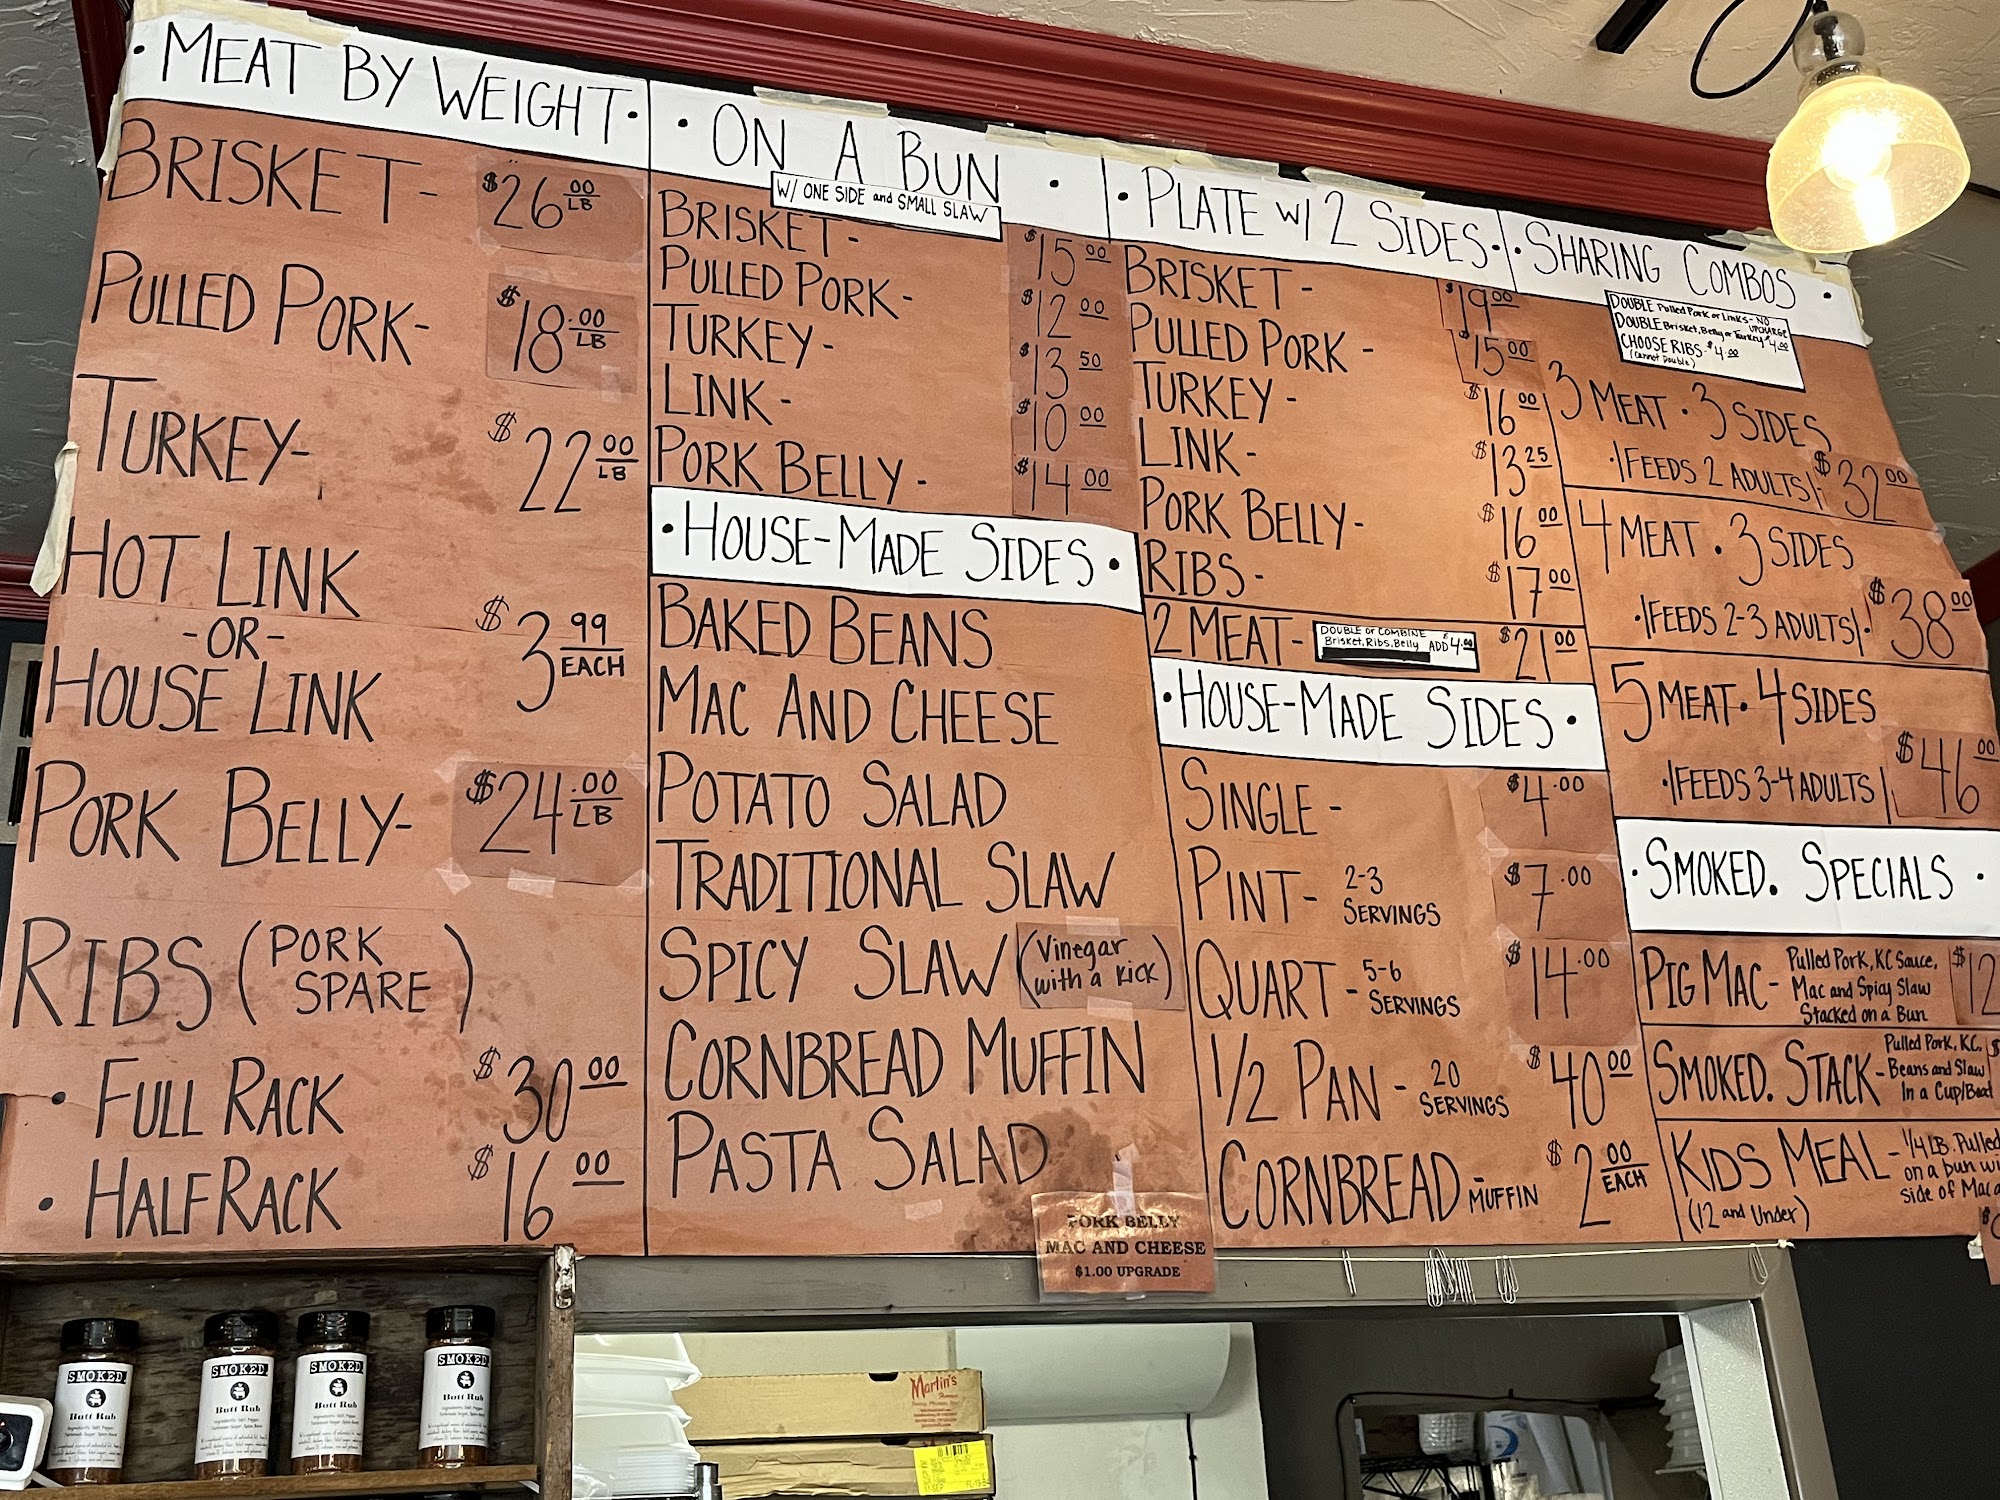 • MEAT BY WEIGHT •
BRISKET - $26.00 LB
PULLED PORK - $18.00 LB
TURKEY - $22.00 LB
HOT LINK
-OR-
HOUSE LINK
$3.99 EACH
PORK BELLY - $24.00 LB
RIBS (PORK SPARE)
• FULL RACK $30.00
• HALF RACK $16.00
• ON A BUN •
W/ ONE SIDE and SMALL SLAW
BRISKET - $15.00
PULLED PORK - $12.00
TURKEY - $13.50
LINK - $10.00
PORK BELLY - $14.00
• HOUSE-MADE SIDES •
BAKED BEANS
MAC AND CHEESE
POTATO SALAD
TRADITIONAL SLAW
SPICY SLAW (Vinegar with a kick)
CORNBREAD MUFFIN
PASTA SALAD
PORK BELLY
MAC AND CHEESE
$1.00 UPGRADE
• PLATE w/ 2 SIDES •
BRISKET - $19.00
PULLED PORK - $15.00
TURKEY - $16.00
LINK - $13.25
PORK BELLY - $16.00
RIBS - $17.00
2 MEAT - $21.00
DOUBLE or COMBINE
Brisket, Ribs, Belly ADD $4.00
• HOUSE-MADE SIDES •
SINGLE - $4.00
PINT - 2-3 SERVINGS $7.00
QUART - 5-6 SERVINGS $14.00
1/2 PAN - 20 SERVINGS $40.00
CORNBREAD - MUFFIN $2.00 EACH
• SHARING COMBOS •
DOUBLE Pulled Pork or Links - NO UPCHARGE
DOUBLE Brisket, Belly or Turkey $4.00
CHOOSE RIBS - $4.00
(Cannot Double)
3 MEAT • 3 SIDES
• |FEEDS 2 ADULTS| • $32.00
4 MEAT • 3 SIDES
• |FEEDS 2-3 ADULTS| • $38.00
5 MEAT • 4 SIDES
• |FEEDS 3-4 ADULTS| $46.00
• SMOKED. SPECIALS •
PIG MAC - Pulled Pork, KC Sauce, $12
Mac and Spicy Slaw
Stacked on a Bun
SMOKED. STACK - Pulled Pork, KC, $
Beans and Slaw
In a Cup/Boat
KIDS MEAL - 1/4 LB. Pulled
(12 and Under) on a bun wi
side of Mac
$
SMOKED.
Butt Rub
SMOKED.
Butt Rub
SMOKED.
Butt Rub
SMOKED.
Butt Rub
Martin's